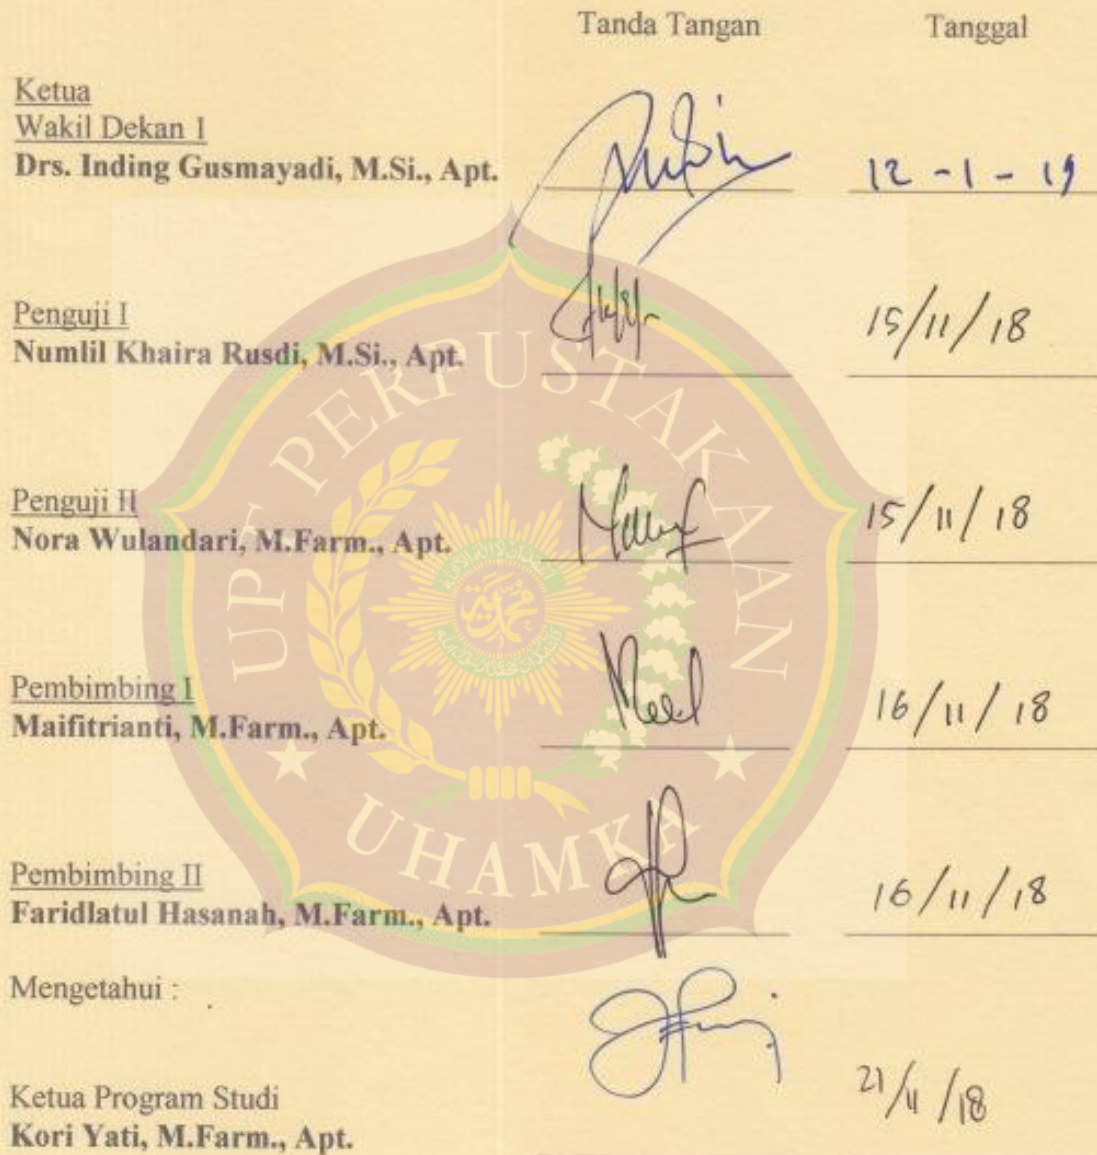 Tanda Tangan Tanggal
Ketua
Wakil Dekan I
Drs. Inding Gusmayadi, M.Si., Apt. 12 - 1 - 19
Penguji I
Numlil Khaira Rusdi, M.Si., Apt. 15/11/18
Penguji II
Nora Wulandari, M.Farm., Apt. 15/11/18
Pembimbing I
Maifitrianti, M.Farm., Apt. 16/11/18
Pembimbing II
Faridlatul Hasanah, M.Farm., Apt. 16/11/18
Mengetahui :
Ketua Program Studi
Kori Yati, M.Farm., Apt. 21/11/18
UPT PERPUSTAKAAN
UHAMKA